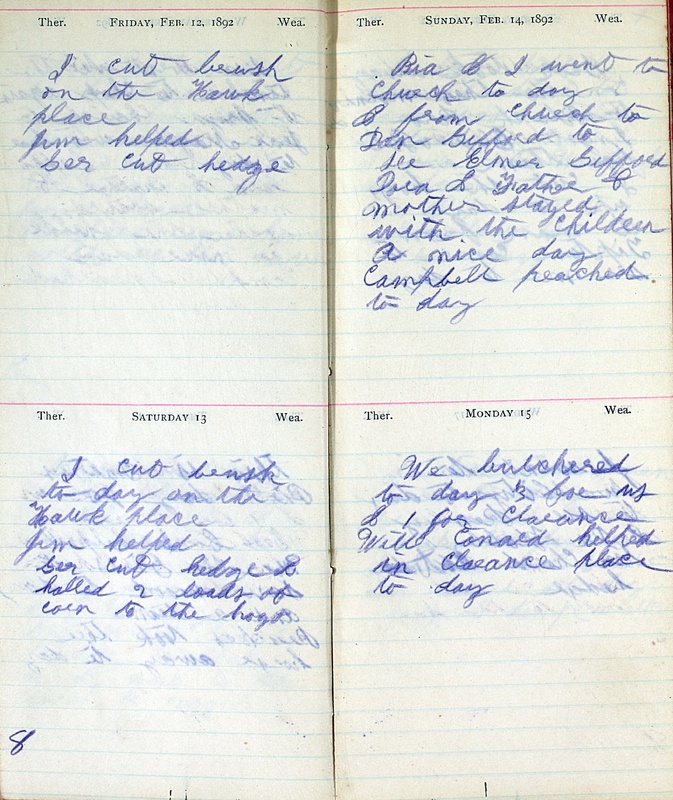 Ther. FRIDAY, FEB. 12, 1892 Wea.
I cut brush
on the Hawk
place
Jim helped
Ger cut hedge
Ther. SATURDAY 13 Wea.
I cut brush
to day on the
Hawk place
Jim helped
Ger cut hedge &
halled 2 loads of
corn to the hogs
8
Ther. SUNDAY, FEB. 14, 1892 Wea.
Bia & I went to
Church to day
& from Church to
Dan Gifford to
see Elmer Gifford
Dora & Father &
Mother stayed
with the Children
A nice day
Campbell preached
to day
Ther. MONDAY 15 Wea.
We butchered
to day 3 for us
& 1 for Clarance
Will Conard helped
in Clarance place
to day